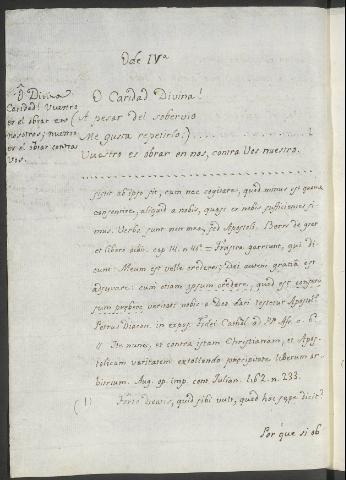 Ode IVª
O Divina
Caridad! Vuestro
es el obrar en
nosotros; nuestro
es el obrar contra
Vos.
O Caridad Divina!
(A pesar del sobervio
Me gusta repetirlo:) . . . . . . . . . . 1
Vuestro es obrar en nos, contra Vos nuestro.
. . . . . . . . . . . . . . . . . . . . . . . . . . . . . .
sicut ab ipso sit, cum nec cogitare, quod minus est quam
consentire, aliquid a nobis, quasi ex nobis sufficientes si-
mus. Verba sunt non mea, sed Apostoli. Bern. de grat
et libero arbit. cap. 14. n. 46. = Frustra garriunt, qui di-
cunt: Meum est velle credere; Dei autem gratiæ est
adjuvare: cum etiam ipsum credere, quod est consen-
sum præbere veritati nobis a Deo dari testetur Apostol.
Petrus Diacon. in expos. Fidei Cathol. ad PP. Afr. c. 6.
// Ite nunc, et contra istam Christianam, et Apos-
tolicam veritatem extollendo præcipitate liberum ar-
bitrium. Aug. op. imp. cont. Julian. lib. 2. n. 233.
(1) Forte dicatis, quid sibi vult, quod hoc sæpe dicit?
Por que si ob-